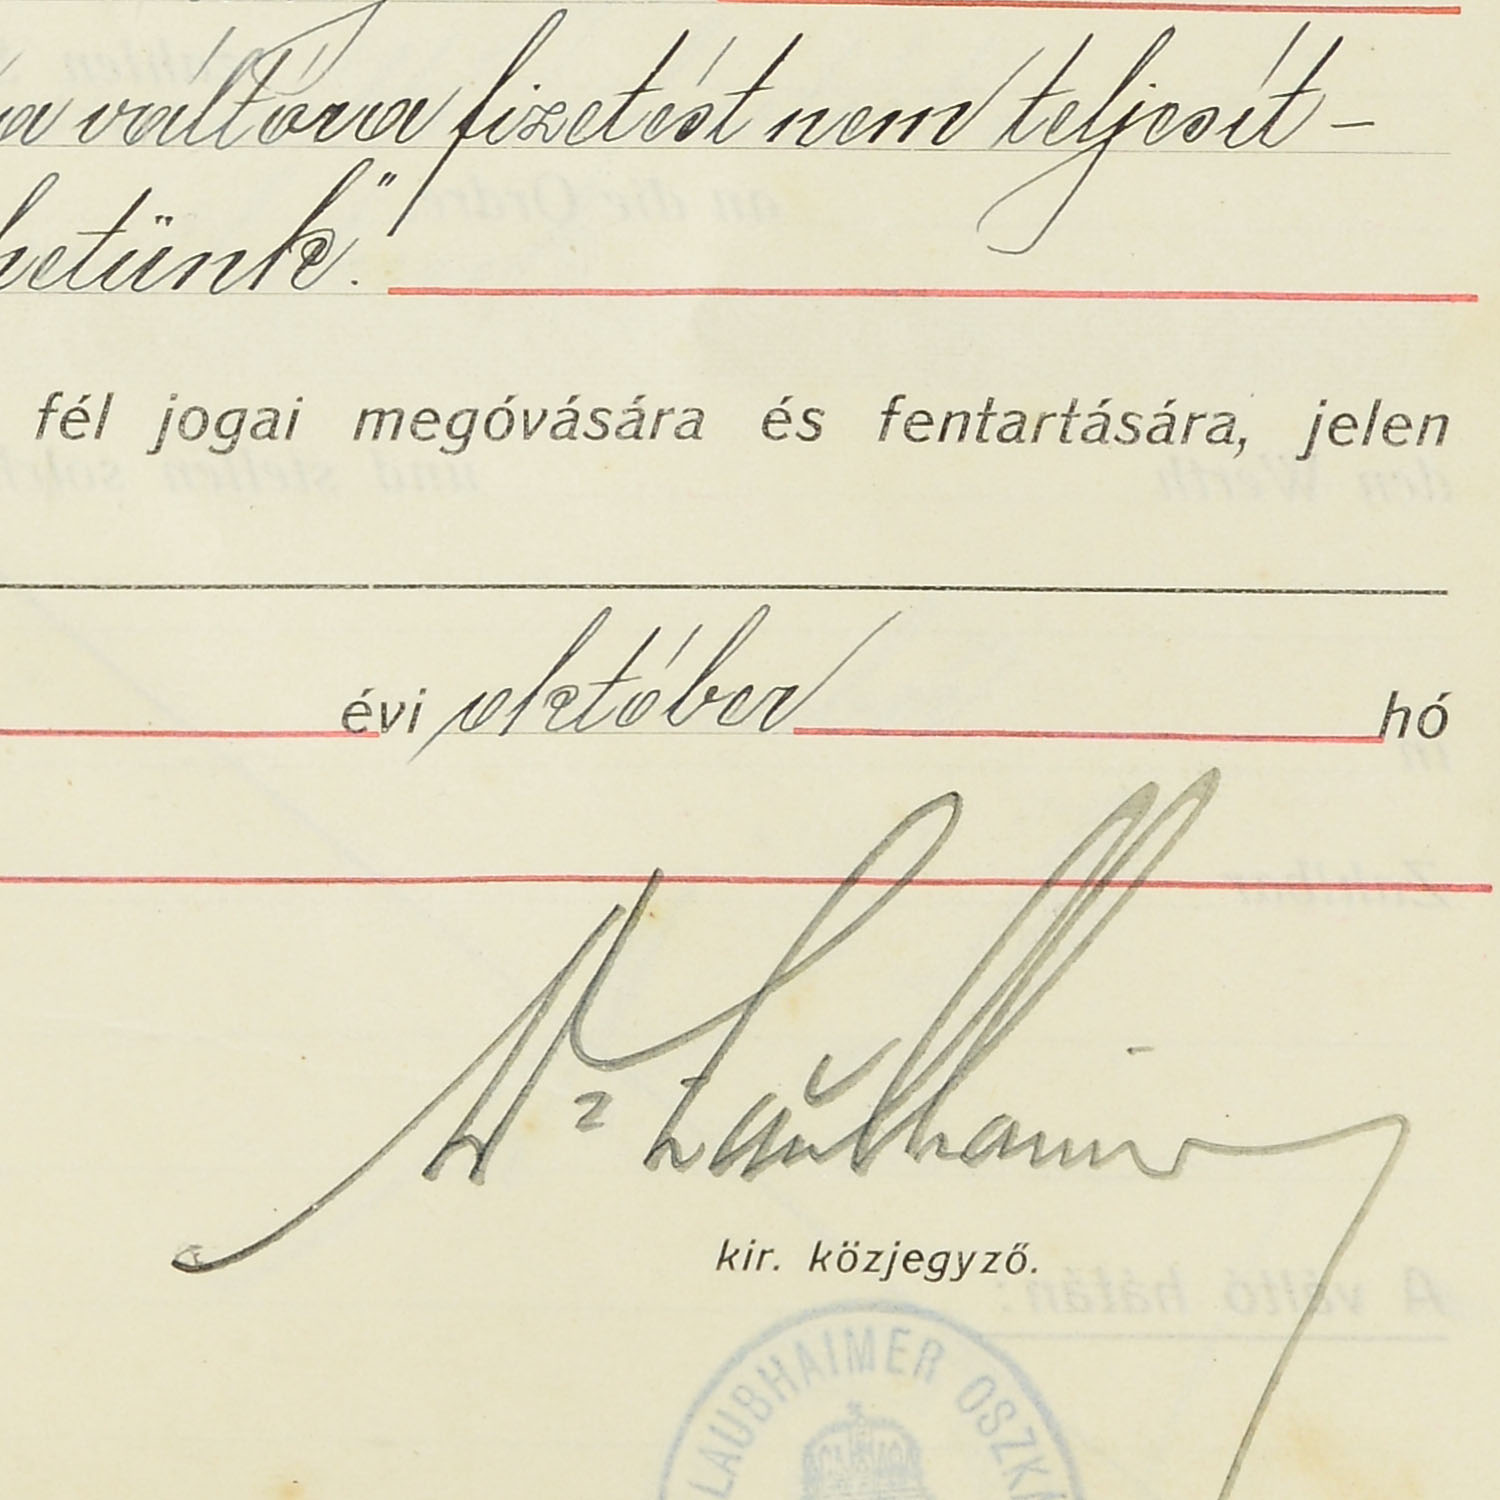 a váltóra fizetést nem teljesít-
hetünk."
fél jogai megóvására és fentartására, jelen
évi október hó
Dr Laubhaimer
kir. közjegyző.
LAUBHAIMER OSZK